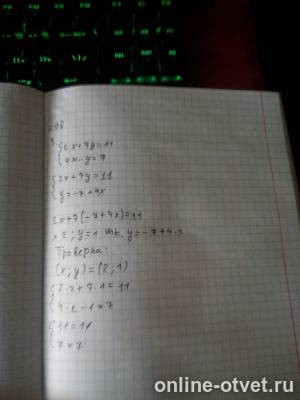 {2x+7y=11
{4x-y=7
{2x+7y=11
{y=-7+4x
2x+7(-7+4x)=11
x=2; y=1 т.к. y=-7+4·2
Проверка:
(x; y)=(2; 1)
{2·2+7·1=11
{4·2-1=7
{11=11
{7=7
online-otvet.ru